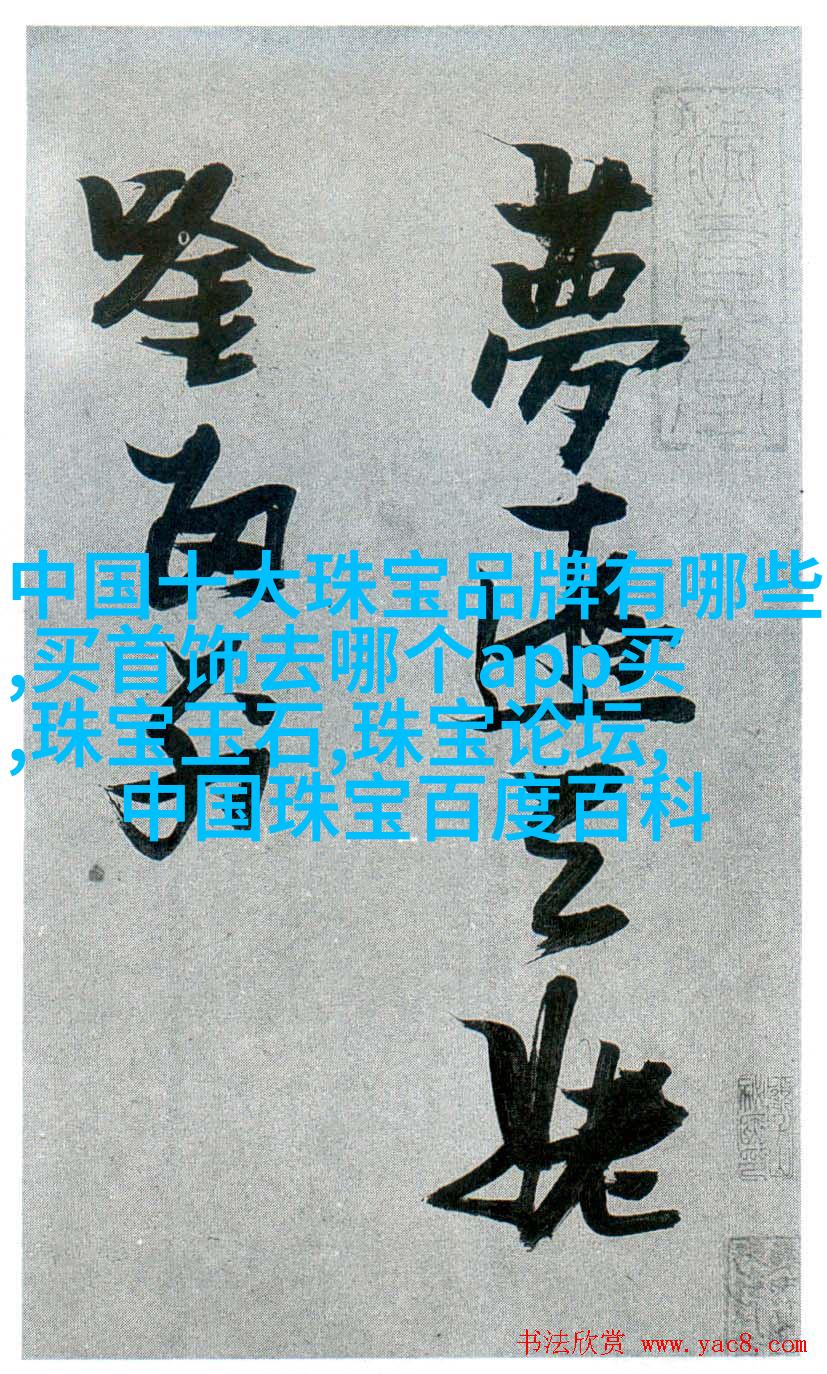 夢遊天姥
唫留別
中国十大珠宝品牌有哪些
,买首饰去哪个app买
,珠宝玉石,珠宝论坛,
中国珠宝百度百科
书法欣赏 www.yac8.com